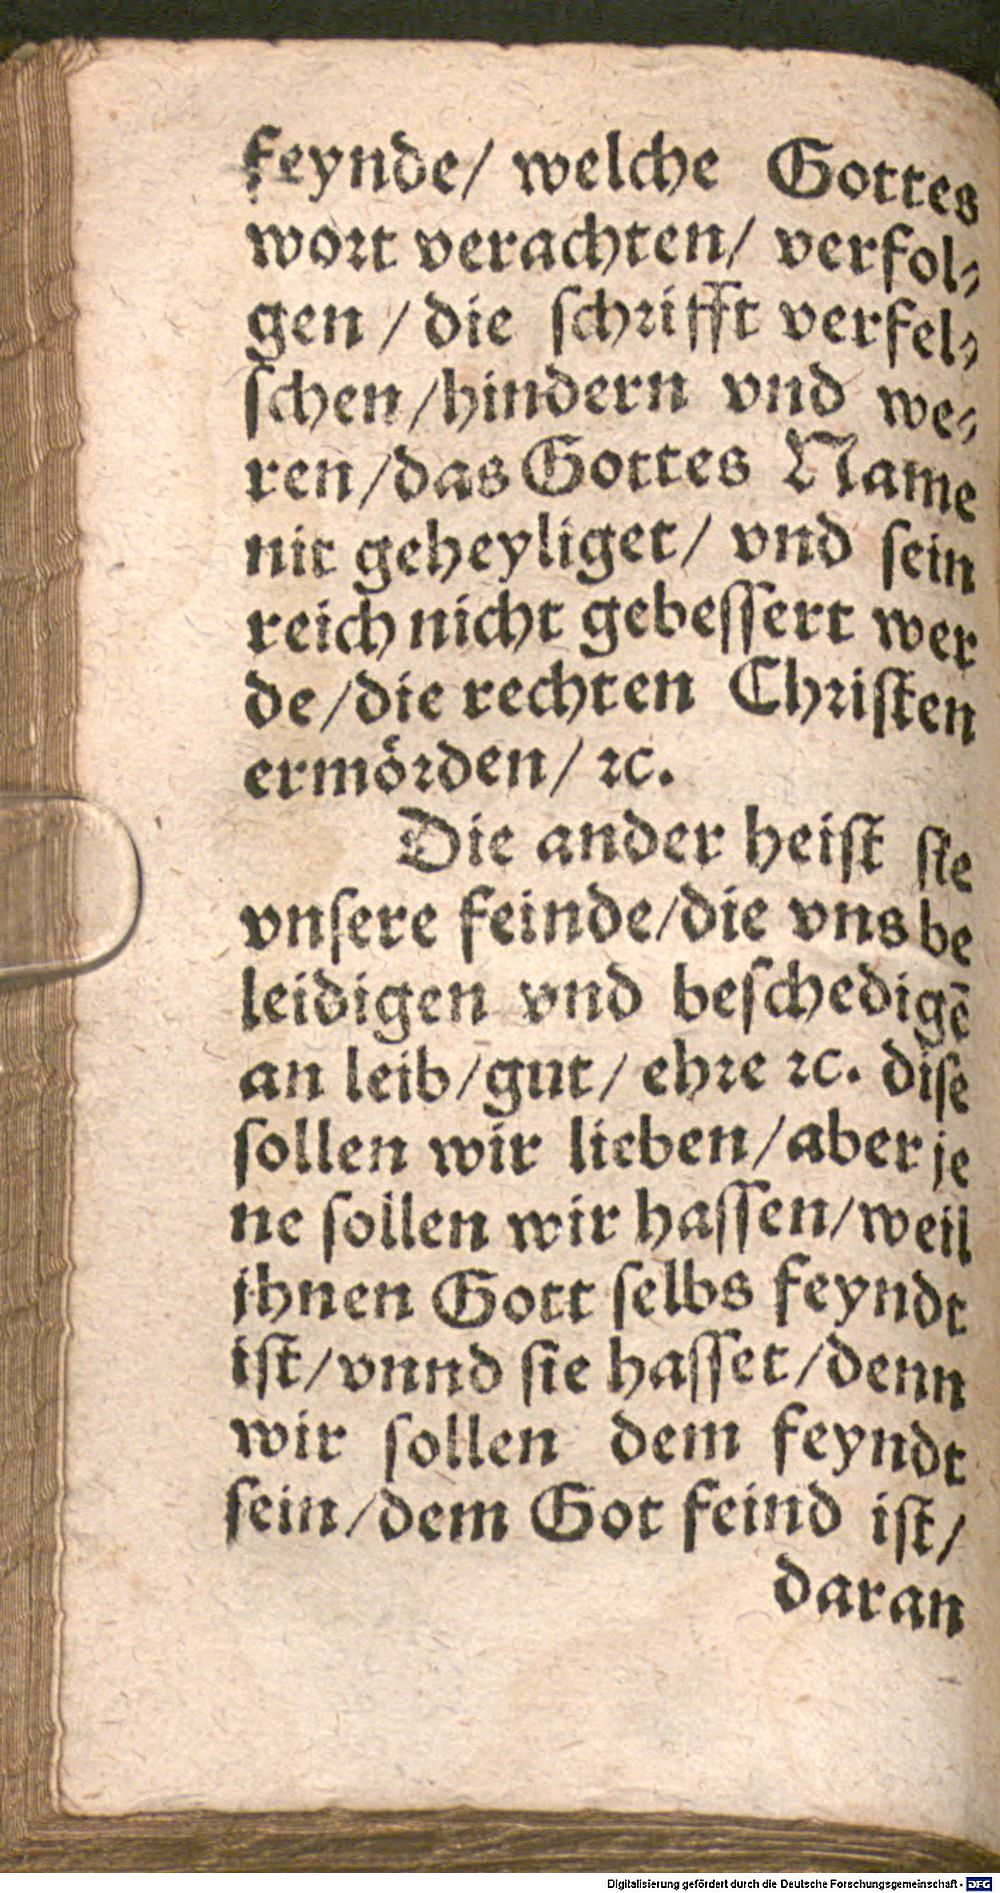 feynde/ welche Gottes
wort verachten/ verfol⸗
gen / die ſchrifft verfel⸗
ſchen /hindern vnd we⸗
ren /das Gottes Name
nit geheyliget/ vnd ſein
reich nicht gebeſſert wer
de /die rechten Chriſten
ermörden/ ꝛc.
Die ander heiſt ſie
vnſere feinde/die vns be
leidigen vnd beſchedigē
an leib/gut/ ehre ꝛc. diſe
ſollen wir lieben/aber je
ne ſollen wir haſſen/weil
jhnen Gott ſelbs feyndt
iſt/vnnd ſie haſſet/denn
wir ſollen dem feyndt
ſein/dem Got feind iſt/
daran
Digitalisierung gefördert durch die Deutsche Forschungsgemeinschaft - DFG